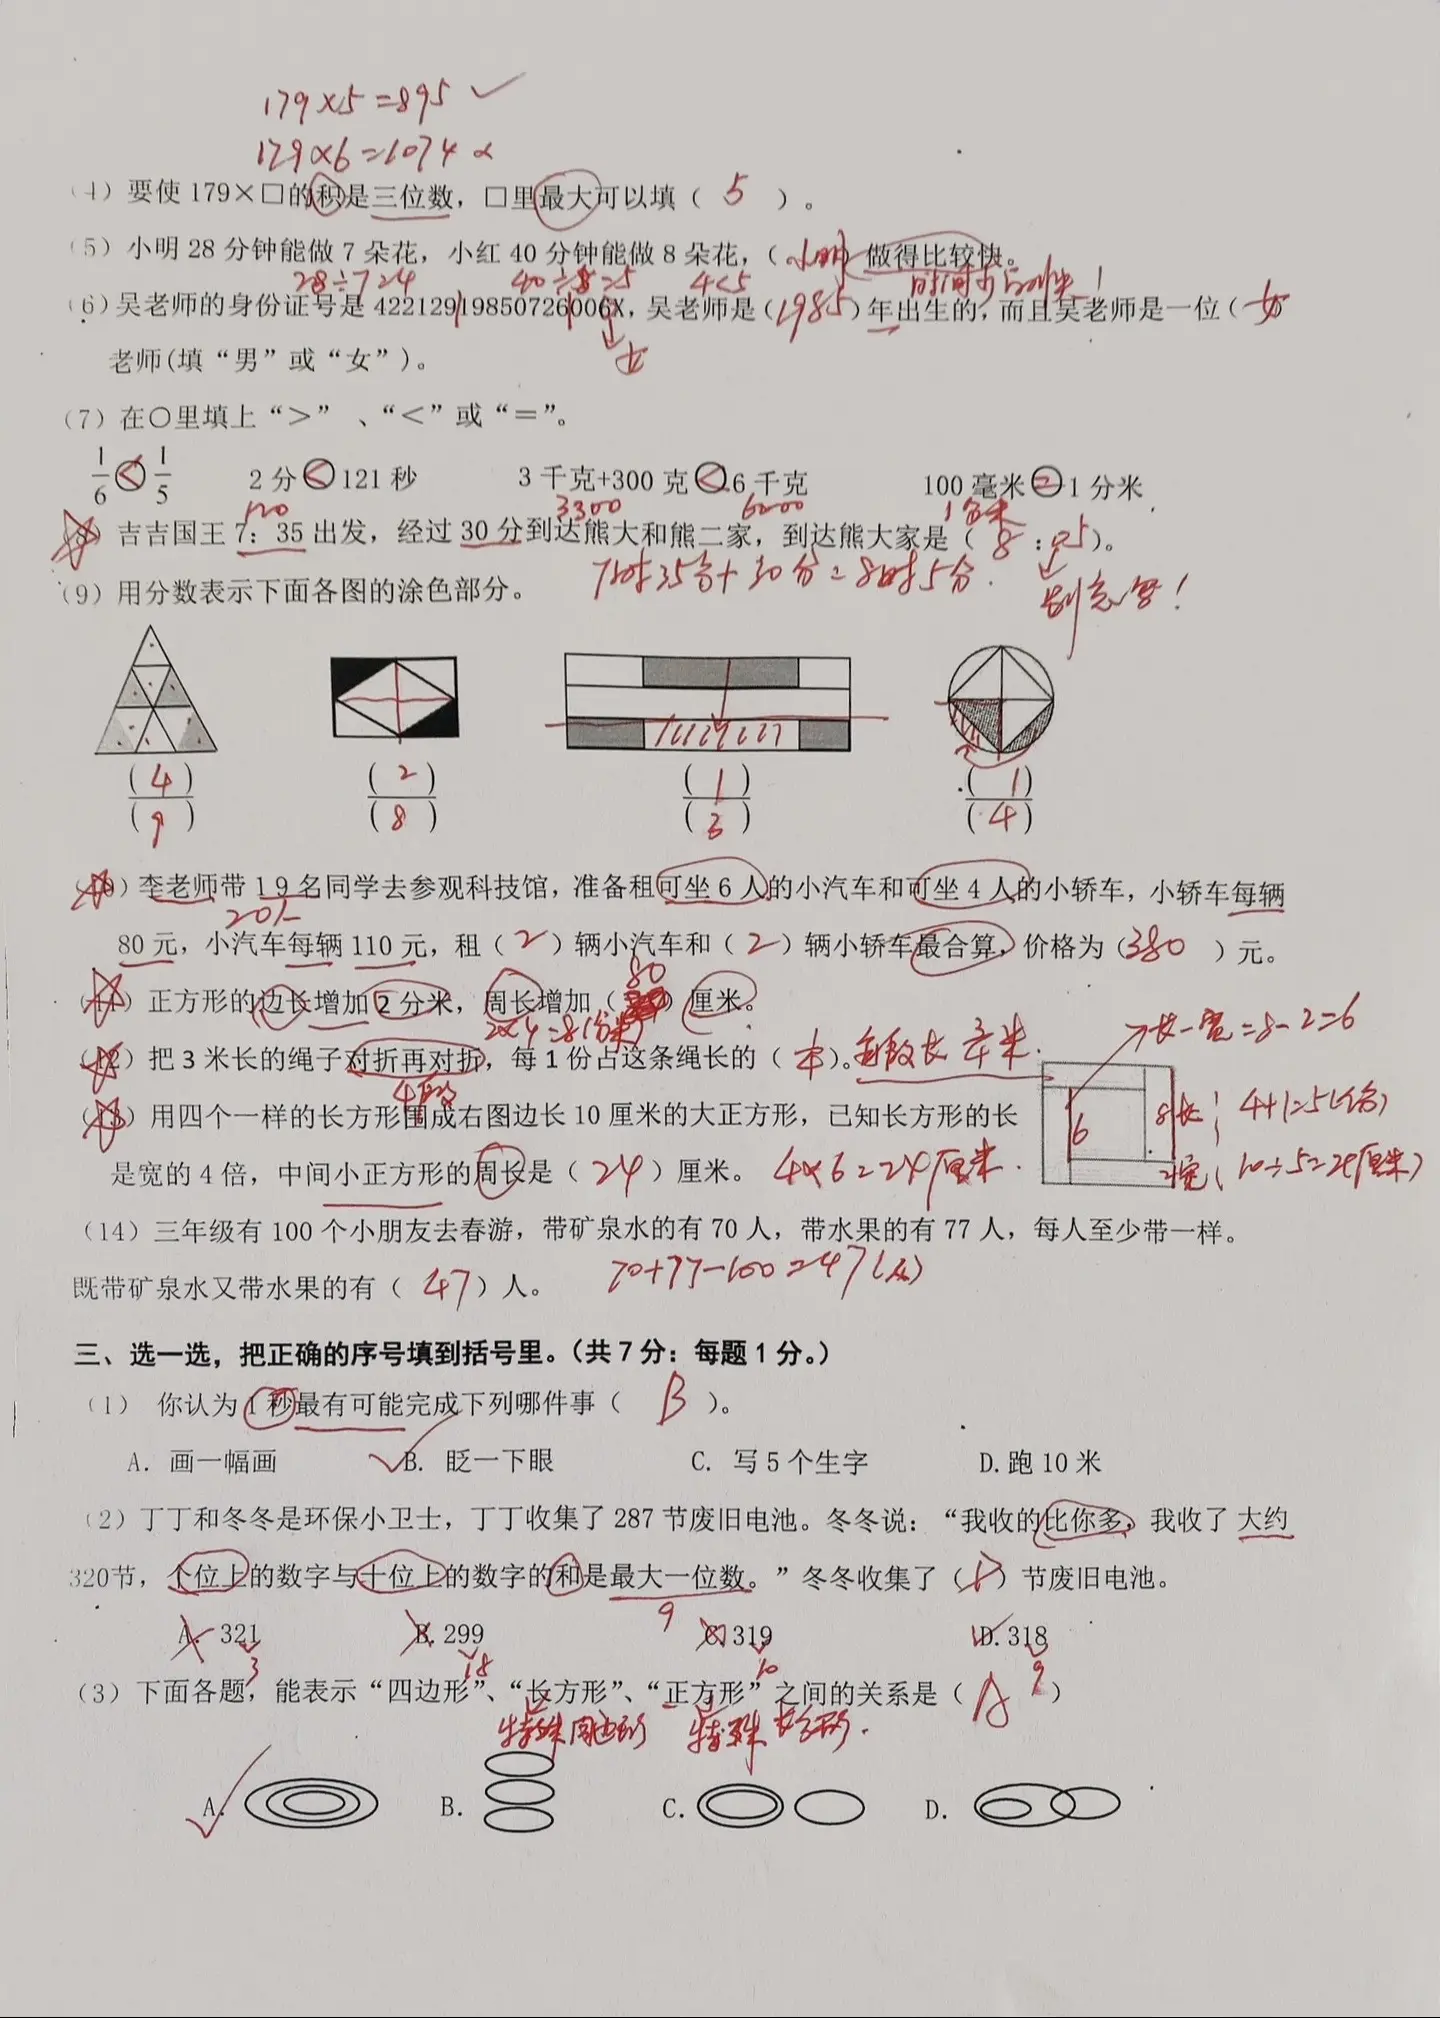 179×5=895 ✓
179×6=1074 ×
(4) 要使 179×□的积是三位数，□里最大可以填（ 5 ）。
(5) 小明 28 分钟能做 7 朵花，小红 40 分钟能做 8 朵花，（小明）做得比较快。
28÷7=4 40÷8=5 4<5
(6) 吴老师的身份证号是 42212919850726006X，吴老师是（1985）年出生的，而且吴老师是一位（女）
女
老师(填“男”或“女”)。
(7) 在○里填上“＞”、“＜”或“＝”。
1/6 < 1/5 2 分 < 121 秒 3 千克+300 克 < 6 千克 100 毫米 = 1 分米
120 3300 6000 1分米
(8) 吉吉国王 7：35 出发，经过 30 分到达熊大和熊二家，到达熊大家是（ 8 ：05）。
7时35分+30分=8时5分.
别忘写！
(9) 用分数表示下面各图的涂色部分。
(4)/(9) (2)/(8) (1)/(3) (1)/(4)
(10) 李老师带 19 名同学去参观科技馆，准备租可坐 6 人的小汽车和可坐 4 人的小轿车，小轿车每辆
20人
80 元，小汽车每辆 110 元，租（ 2 ）辆小汽车和（ 2 ）辆小轿车最合算，价格为（380 ）元。
(11) 正方形的边长增加 2 分米，周长增加（ 80 ）厘米。
2×4=8(分米)
(12) 把 3 米长的绳子对折再对折，每 1 份占这条绳长的（ 1/4 ）。每段长 3/4 米.
4段
长-宽=8-2=6
(13) 用四个一样的长方形围成右图边长 10 厘米的大正方形，已知长方形的长
6 8长 4+1=5(份)
是宽的 4 倍，中间小正方形的周长是（ 24 ）厘米。 4×6=24厘米.
2宽 10÷5=2(厘米)
(14) 三年级有 100 个小朋友去春游，带矿泉水的有 70 人，带水果的有 77 人，每人至少带一样。
既带矿泉水又带水果的有（ 47 ）人。 70+77-100=47(人)
三、选一选，把正确的序号填到括号里。（共 7 分：每题 1 分。）
(1) 你认为 1 秒最有可能完成下列哪件事（ B ）。
A. 画一幅画 B. 眨一下眼 C. 写 5 个生字 D.跑 10 米
(2) 丁丁和冬冬是环保小卫士，丁丁收集了 287 节废旧电池。冬冬说：“我收的比你多，我收了 大约
320节，个位上的数字与十位上的数字的和是最大一位数。”冬冬收集了（D）节废旧电池。
9
A. 321 B.299 C.319 D.318
3 18 10 9
(3) 下面各题，能表示“四边形”、“长方形”、“正方形”之间的关系是（ A ）
特殊四边形 特殊长方形.
A. B. C. D.